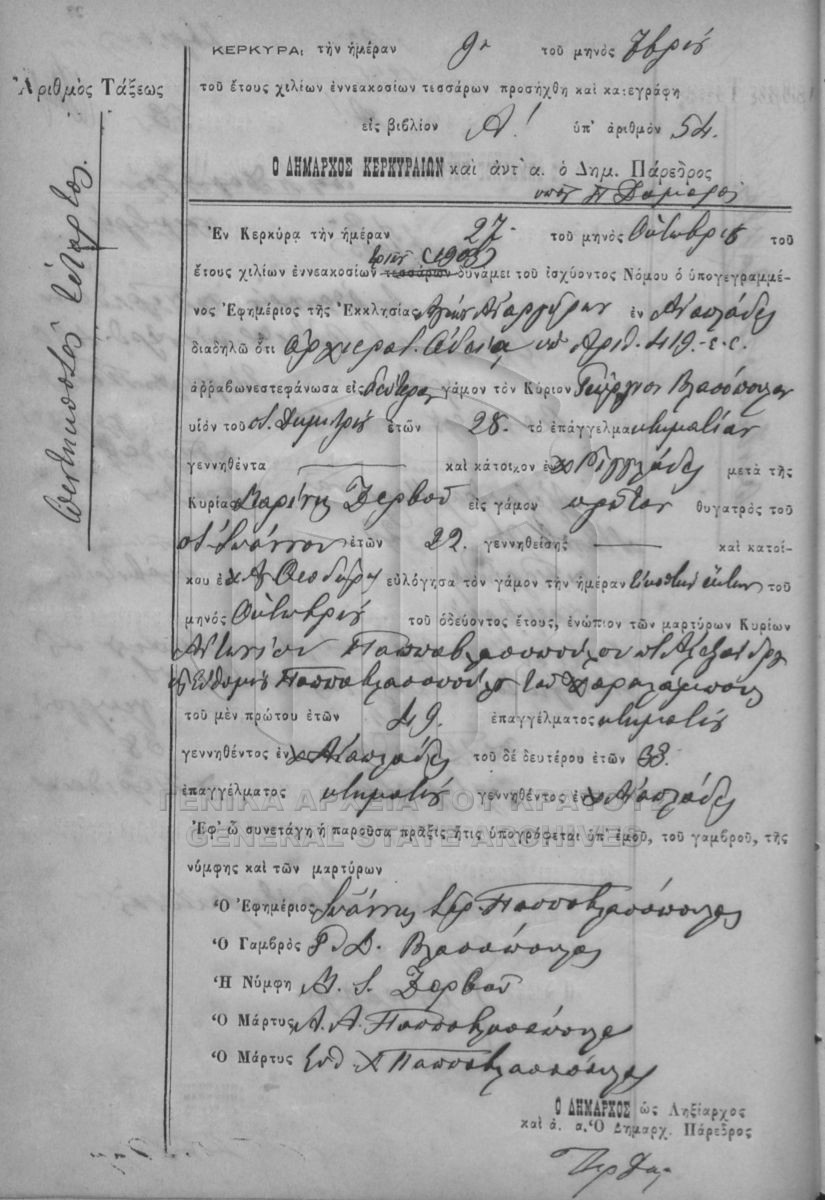 ΚΕΡΚΥΡΑ, τὴν ἡμέραν 9ην τοῦ μηνὸς
Ἀριθμὸς Τάξεως
τοῦ ἔτους χιλίων ἐννεακοσίων τεσσάρων προσήχθη καὶ κατεγράφη
εἰς βιβλίον Α! ὑπ' ἀριθμὸν 54.
Ὁ ΔΗΜΑΡΧΟΣ ΚΕΡΚΥΡΑΙΩΝ καὶ ἀντ' α. ὁ Δημ. Πάρεδρος
πεντηκοστὸς τέταρτος.
Ἐν Κερκύρᾳ τὴν ἡμέραν 27 τοῦ μηνὸς Ὀκτωβρίου τοῦ
τριῶν (1903)
ἔτους χιλίων ἐννεακοσίων τεσσάρων δυνάμει τοῦ ἰσχύοντος Νόμου ὁ ὑπογεγραμμέ-
νος Ἐφημέριος τῆς Ἐκκλησίας Ἁγίων Ἀναργύρων ἐν
διαδηλῶ ὅτι ἀρχιερατ. ἀδείᾳ ὑπ' ἀριθ. 419 ε. ἔ.
ἀρραβωνεστεφάνωσα εἰς δεύτερον γάμον τὸν Κύριον Γεώργιον Βλασόπουλον
υἱὸν τοῦ ποτ. Δημητρίου ἐτῶν 28. τὸ ἐπάγγελμα κτηματίαν
γεννηθέντα — καὶ κάτοικον ἐν χ. Ριγγλάδες μετὰ τῆς
Κυρίας Μαρίνης Ζερβοῦ εἰς γάμον πρῶτον θυγατρὸς τοῦ
ποτ. Ἰωάννου ἐτῶν 22. γεννηθείσης — καὶ κατοί-
κου ἐν χ. Ἁγ. Θεοδώρῳ εὐλόγησα τὸν γάμον τὴν ἡμέραν εἰκοστὴν ἕκτην τοῦ
μηνὸς Ὀκτωβρίου τοῦ ὁδεύοντος ἔτους, ἐνώπιον τῶν μαρτύρων Κυρίων
Ἀντωνίου Παππαβλασοπούλου ποτ. Ἀλεξάνδρου
καὶ Εὐθυμίου Παππαβλασοπούλου τοῦ Χαραλάμπους
τοῦ μὲν πρώτου ἐτῶν 49. ἐπαγγέλματος κτηματίου
γεννηθέντος ἐν χ. τοῦ δὲ δευτέρου ἐτῶν 33.
ἐπαγγέλματος κτηματίου γεννηθέντος ἐν χ.
ΓΕΝΙΚΑ ΑΡΧΕΙΑ ΤΟΥ ΚΡΑΤΟΥΣ
GENERAL STATE ARCHIVES
Ἐφ' ᾧ συνετάγη ἡ παροῦσα πρᾶξις ἥτις ὑπογράφεται ὑπ' ἐμοῦ, τοῦ γαμβροῦ, τῆς
νύμφης καὶ τῶν μαρτύρων
Ὁ Ἐφημέριος Ἰωάννης ἱερ. Παππαβλασόπουλος
Ὁ Γαμβρὸς Γ. Δ. Βλασόπουλος
Ἡ Νύμφη Μ. Ι. Ζερβοῦ
Ὁ Μάρτυς Α. Α. Παππαβλασόπουλος
Ὁ Μάρτυς Εὐθ. Χ Παππαβλασόπουλος
Ὁ ΔΗΜΑΡΧΟΣ ὡς Ληξίαρχος
καὶ ἀ. α. Ὁ Δημαρχ. Πάρεδρος